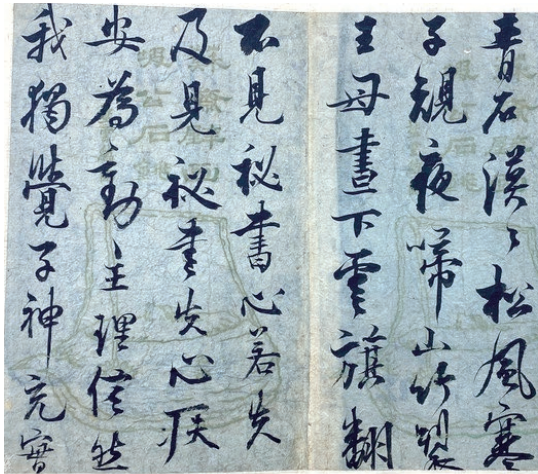 青石漠々松風寒
子規夜啼山竹裂
王母晝下雲旗翻
不見秘書心若失
及見秘書失心疾
安為動主理信然
我獨覺子神充實